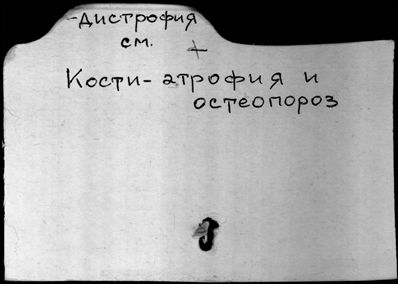 -Дистрофия
см. +
Кости- атрофия и
остеопороз